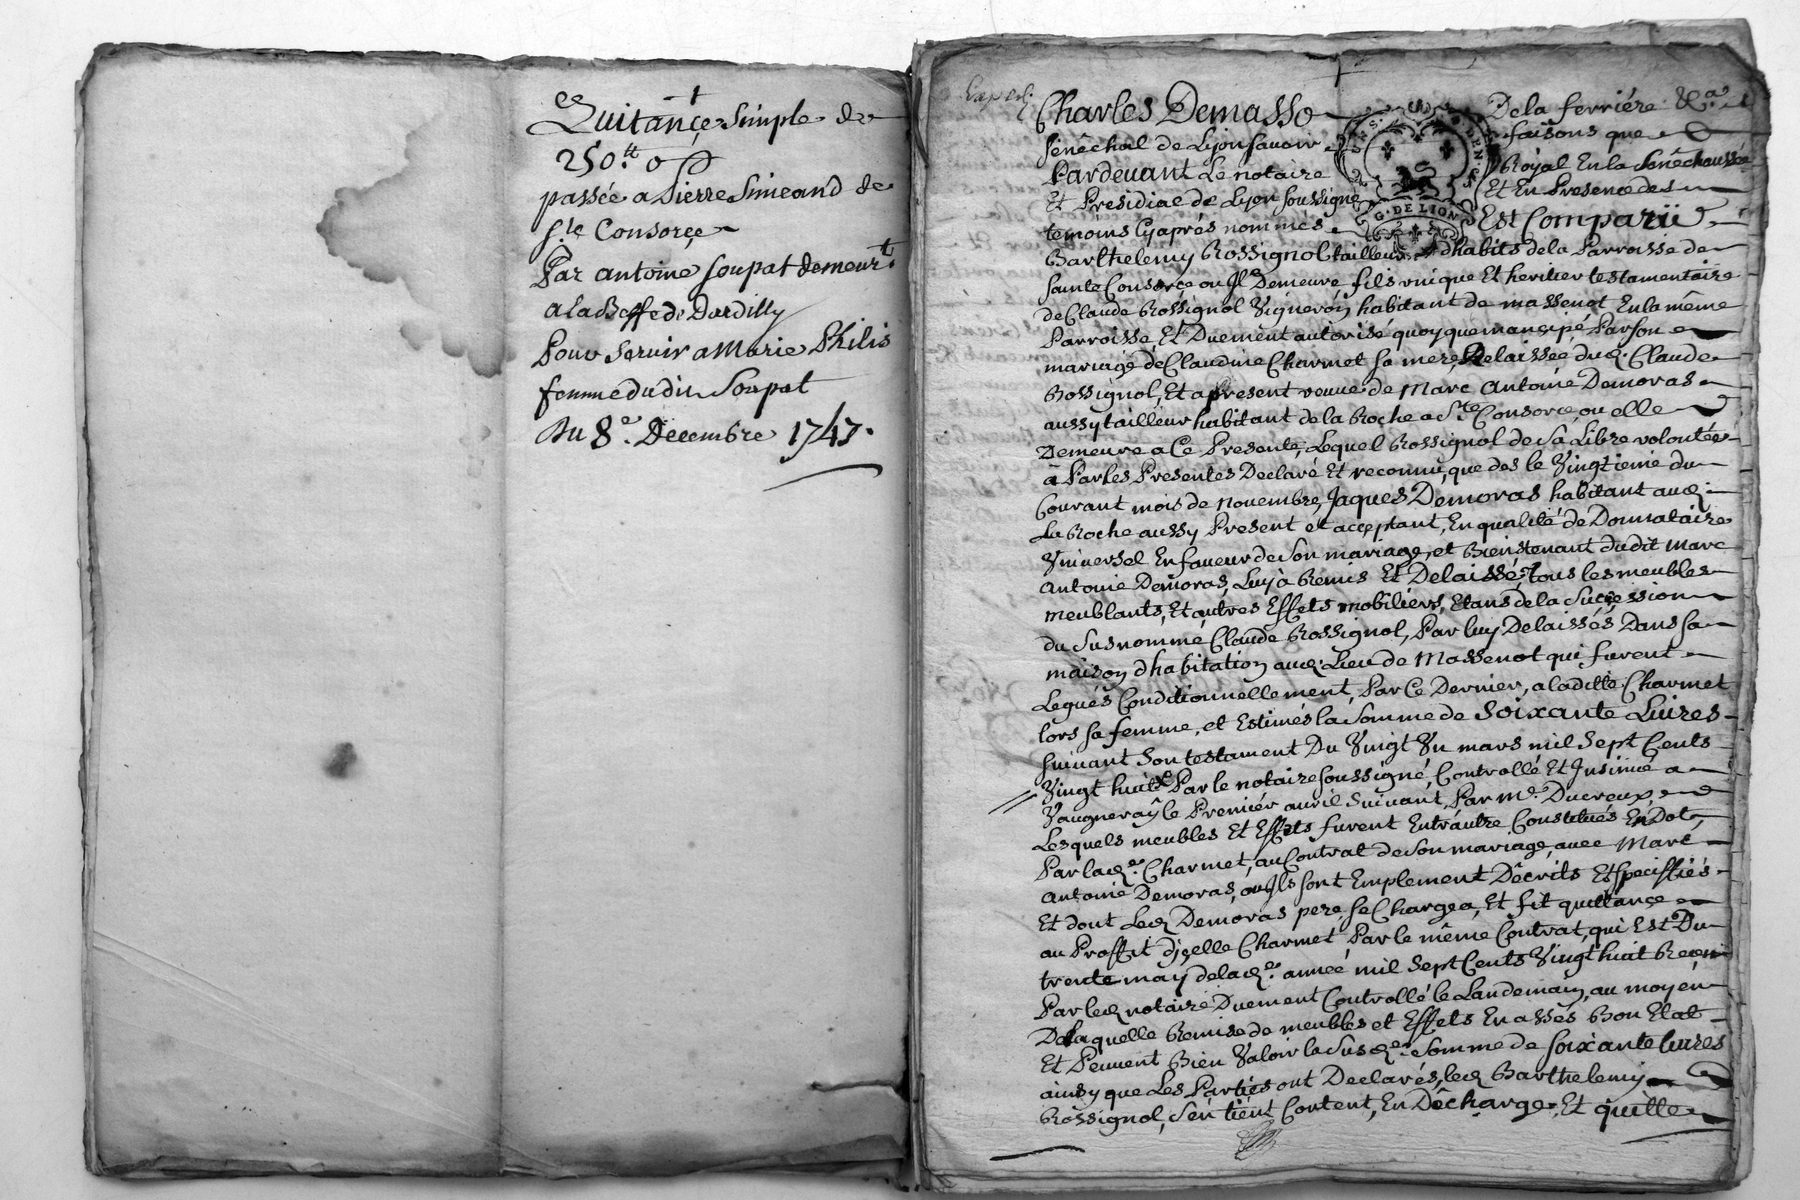 Quitançe simple de
250.tt 0 s
passée a Pierre Simeand de
s.te Consorçe
Par antoine soupat demeur.t
a la Beffe de Dardilly
Pour servir a Marie Philis
femme dudit Soupat
Du 8.e Decembre 1747.
Exped.
Charles Demasso De la ferriére &c.a
sénéchal de Lyon savoir faisons que
Pardevant Le notaire Royal En la Sénéchaussée
Et Presidial de Lyon soussigné Et En Presence des
temoins Cyaprés nommés Est Comparü
G. DE LION
Barthelemy Rossignol tailleur dhabits de la Parroisse de
sainte Consorçe ou Jl Demeure fils unique Et heritier testamentaire
de Claude Rossignol Vigneron habitant de massenot En la même
Parroisse, Et Duement autorisé quoyque mançipé Par son
mariage de Claudine Charmet sa mere, Delaissée dud. Claude
Rossignol, Et apresent venue de Marc Antoine Demoras
aussy tailleur habitant de la Roche a S.te Consorce, ou elle
Demeure a Ce Presente; Lequel Rossignol de sa Libre volontée
â Par les Presentes Declaré Et reconnu, que des le Vingtieme du
Courant mois de novembre, Jaques Demoras habitant aud.
La Roche aussy Present et acceptant, En qualité de Donnataire
Vniversel En faveur de Son mariage, et Bienstenant dudit Marc
Antoine Demoras, Luy à Remis Et Delaissé, tous les meubles
meublants, Et autres Effets mobiliers, Etans de la Sucçession
du Susnommé, Claude Rossignol, Par luy Delaissés, Dans Sa
maison dhabitation aud. Lieu de Massenot qui furent
Legués Conditionnellement, Par Ce Dernier, a la dite Charmet
lors sa femme, et Estimés la Somme de Soixante Livres
suivant Son testament Du Vingt Vn mars mil Sept Cents
Vingt huit Par le notaire soussigné, Controllé Et Jnsinüé a
Vaugneraÿ le Premiér avril suivant, Par M.e Ducreux,
Lesquels meubles Et Effets furent Entrautre Constitués En Dot,
Par lad.e Charmet, au Contrat de Son mariage, avec Marc
Antoine Demoras, ou Jls sont Emplement Décrits Et specifiiés
Et dont Led. Demoras pere, se Chargea, Et fit quittançe
au Proffit djçelle Charmet Par le même Contrat, qui Est Du
trente may de lad.e année mil Sept Cents Vingt huit Recen
Par led. notaire Duement Controllé le Landemain, au moyen
De laquelle Remise de meubles et Effets En assés Bon Etat
Et Peuvent Bien Valoir la Susd.e Somme de soixante livres
ainsy que Les Parties ont Declarés, led. Barthelemy
Rossignol, s'en tient Content, En Décharge, Et quitte